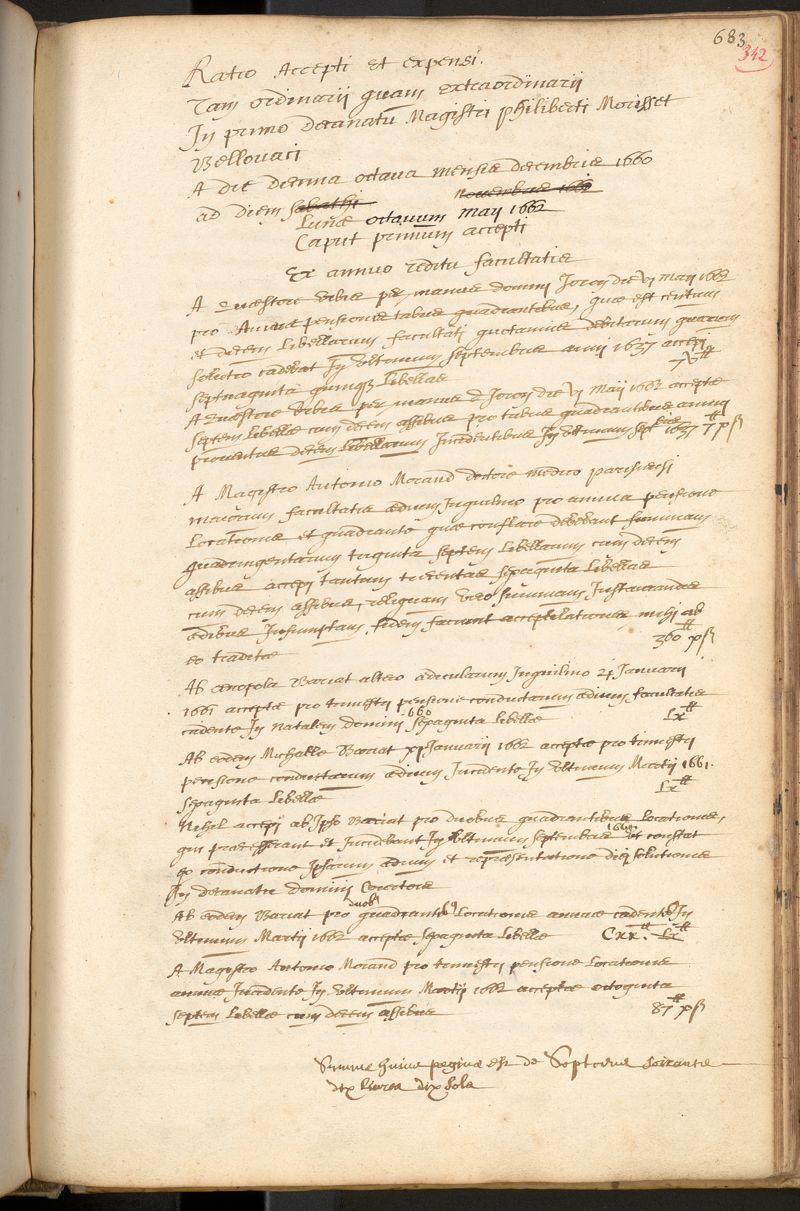 683
342
Ratio Accepti et expensi.
Tam ordinarii quam extraordinarii
In primo decanatu Magistri philiberti Morisset
Bellovaci
A die decima octava mensis decembris 1660
ad diem Sabathi novembris 1661
Lunæ octavum Maii 1662
Caput primum accepti
Ex annuo reditu facultatis
A quæstore urbis per manus domini Joron die vj Maii 1662
pro Annuæ pensionis tribus quadrantibus, quæ est centum
et decem libellarum facultati quotannis debitarum quarum
solutio cadebat In ultimum septembris anni 1637 accepi
septuaginta quinque libellas
A quæstore urbis per manus D Joron die vj Maii 1662 acceptæ
septem libellæ cum decem assibus pro tribus quadrantibus annui
proventus decem libellarum Incidentibus In ultimum sept 1637 7 tt x s
A Magistro Antonio Morand doctore medico parisiensi
maiorum facultatis ædium Inquilino pro annua pensione
Locationis et quadrante quæ conflare debebant summam
quadringentarum triginta septem libellarum cum decem
assibus accepi tantum trecentas sexaginta libellas
cum decem assibus, reliquam vero summam Instaurandis
ædibus Insumptam fidem faciunt acceptilationes mihi ab
eo traditæ
360 tt x s
Ab œnopola Bariat altero ædicularum Inquilino 21 Januarii
1661 acceptæ pro trimestri pensione conductarum ædium facultatis
cadente In natalem domini 660 sexaginta libellæ
Lx tt
Ab eodem Michaële Bariat xj Januarii 1662 acceptæ pro trimestri
pensione conductarum ædium Incidente In ultimum Martii 1661.
sexaginta libellæ
Lx tt
Nihil accepi ab Ipso Bariat pro duobus quadrantibus locationis,
qui præcesserant et Incidebant In ultimum septembris 1660 ut constat
ex conductione Ipsarum ædium et repræsentatione solutionis
In decanatu domini Courtois
Ab eodem Bariat pro duob9 quadrantib9 Locationis annuæ cadentib9 In
ultimum Martii 1662 acceptæ sexaginta libellæ Cxx. tt Lx tt
A Magistro Antonio Morand pro trimestri pensione Locationis
annuæ Incidente In ultimum Martii 1662 acceptæ octoginta
septem libellæ cum decem assibus
87 tt x s
Summa huius paginæ est de Sept cens soixante
dix livres dix sols